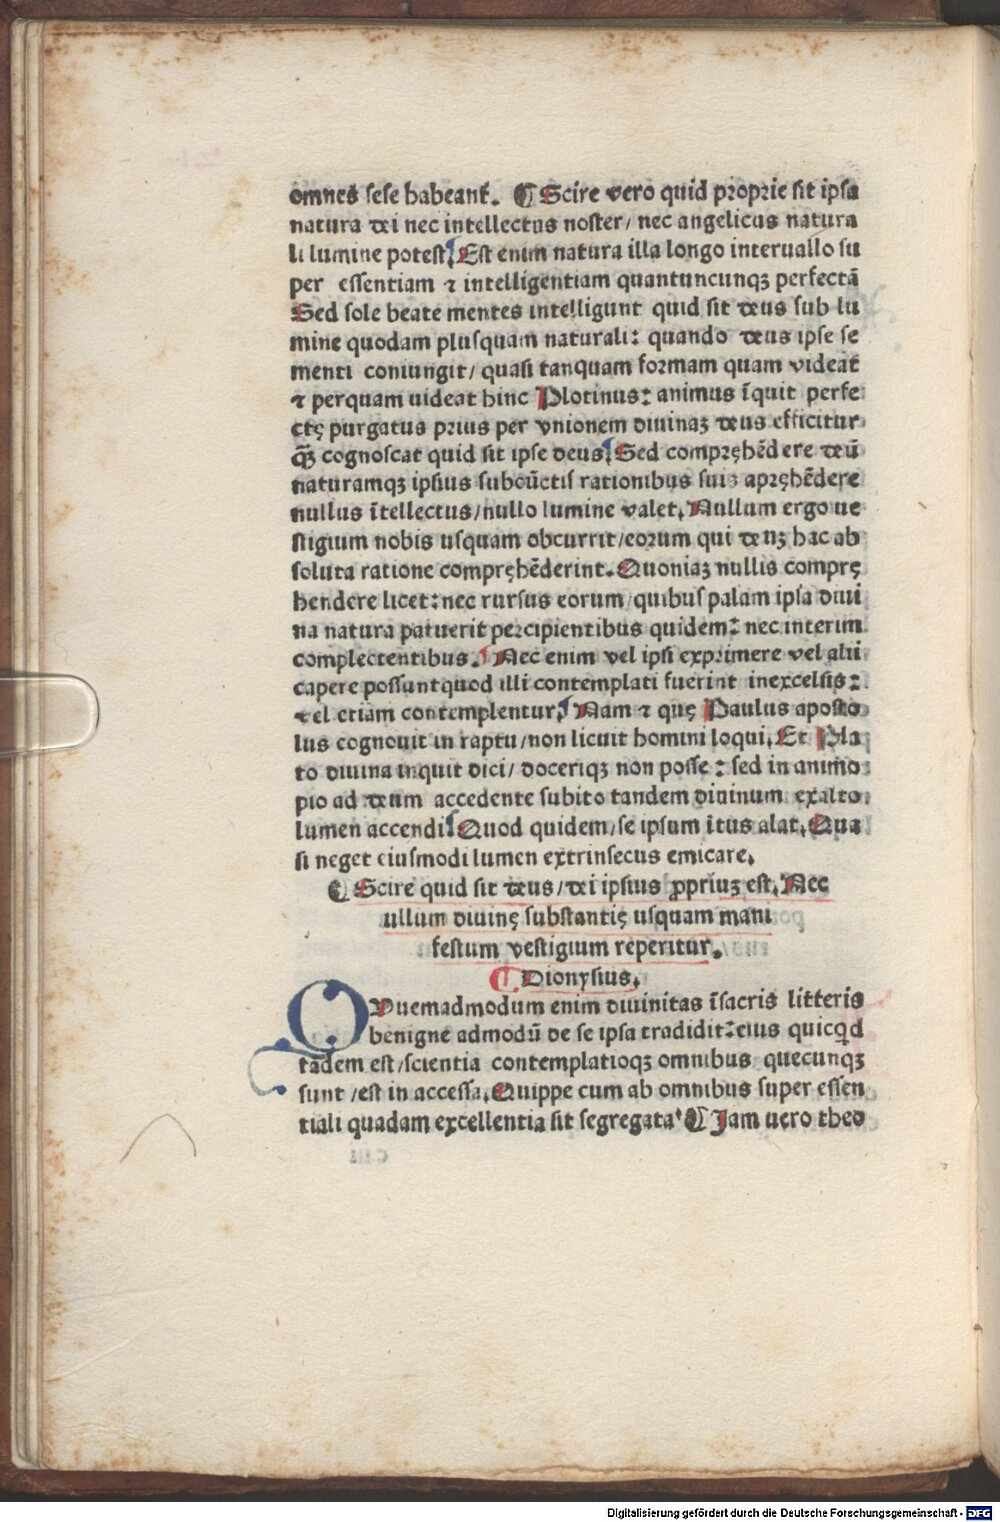 omnes sese habeant̄. ¶ Scire vero quid proprie sit ipsa
natura dei nec intellectus noster/ nec angelicus natura
li lumine potest. Est enim natura illa longo interuallo su
per essentiam ⁊ intelligentiam quantuncunqꝫ perfectā
Sed sole beate mentes intelligunt quid sit deus sub lu
mine quodam plusquam naturali: quando deus ipse se
menti coniungit/ quasi tanquam formam quam videat
⁊ perquam uideat hinc Plotinus: animus īquit perfe
ctę purgatus prius per vnionem diuinaꝫ deus efficitur
qȝ̄ cognoscat quid sit ipse deus. Sed compręhēdere deū
naturamqꝫ ipsius subcūctis rationibus suis apręhēdere
nullus ītellectus/nullo lumine valet. Nullum ergo ue
stigium nobis usquam obcurrit/eorum qui deuꝫ hac ab
soluta ratione compręhēderint. Quoniaꝫ nullis comprę
hendere licet: nec rursus eorum/quibus palam ipsa diui
na natura patuerit percipientibus quidem: nec interim
complectentibus. Nec enim vel ipsi exprimere vel alii
capere possunt quod illi contemplati fuerint inexcelsis:
vel etiam contemplentur. Nam ⁊ quę Paulus aposto
lus cognouit in raptu/non licuit homini loqui. Et Pla
to diuina inquit dici/ doceriqꝫ non posse: sed in animo
pio ad deum accedente subito tandem diuinum exalto
lumen accendi. Quod quidem/se ipsum ītus alat. Qua
si neget eiusmodi lumen extrinsecus emicare.
¶ Scire quid sit deus/dei ipsius ꝓpriuꝫ est. Nec
ullum diuinę substantię usquam mani
festum vestigium reperitur.
¶ Dionysius.
QVuemadmodum enim diuinitas īsacris litteris
benigne admodū de se ipsa tradidit: eius quicq̇d
tādem est/scientia contemplatioqꝫ omnibus quecunqꝫ
sunt /est in accessa. Quippe cum ab omnibus super essen
tiali quadam excellentia sit segregata. ¶ Iam uero theo
Digitalisierung gefördert durch die Deutsche Forschungsgemeinschaft - DFG